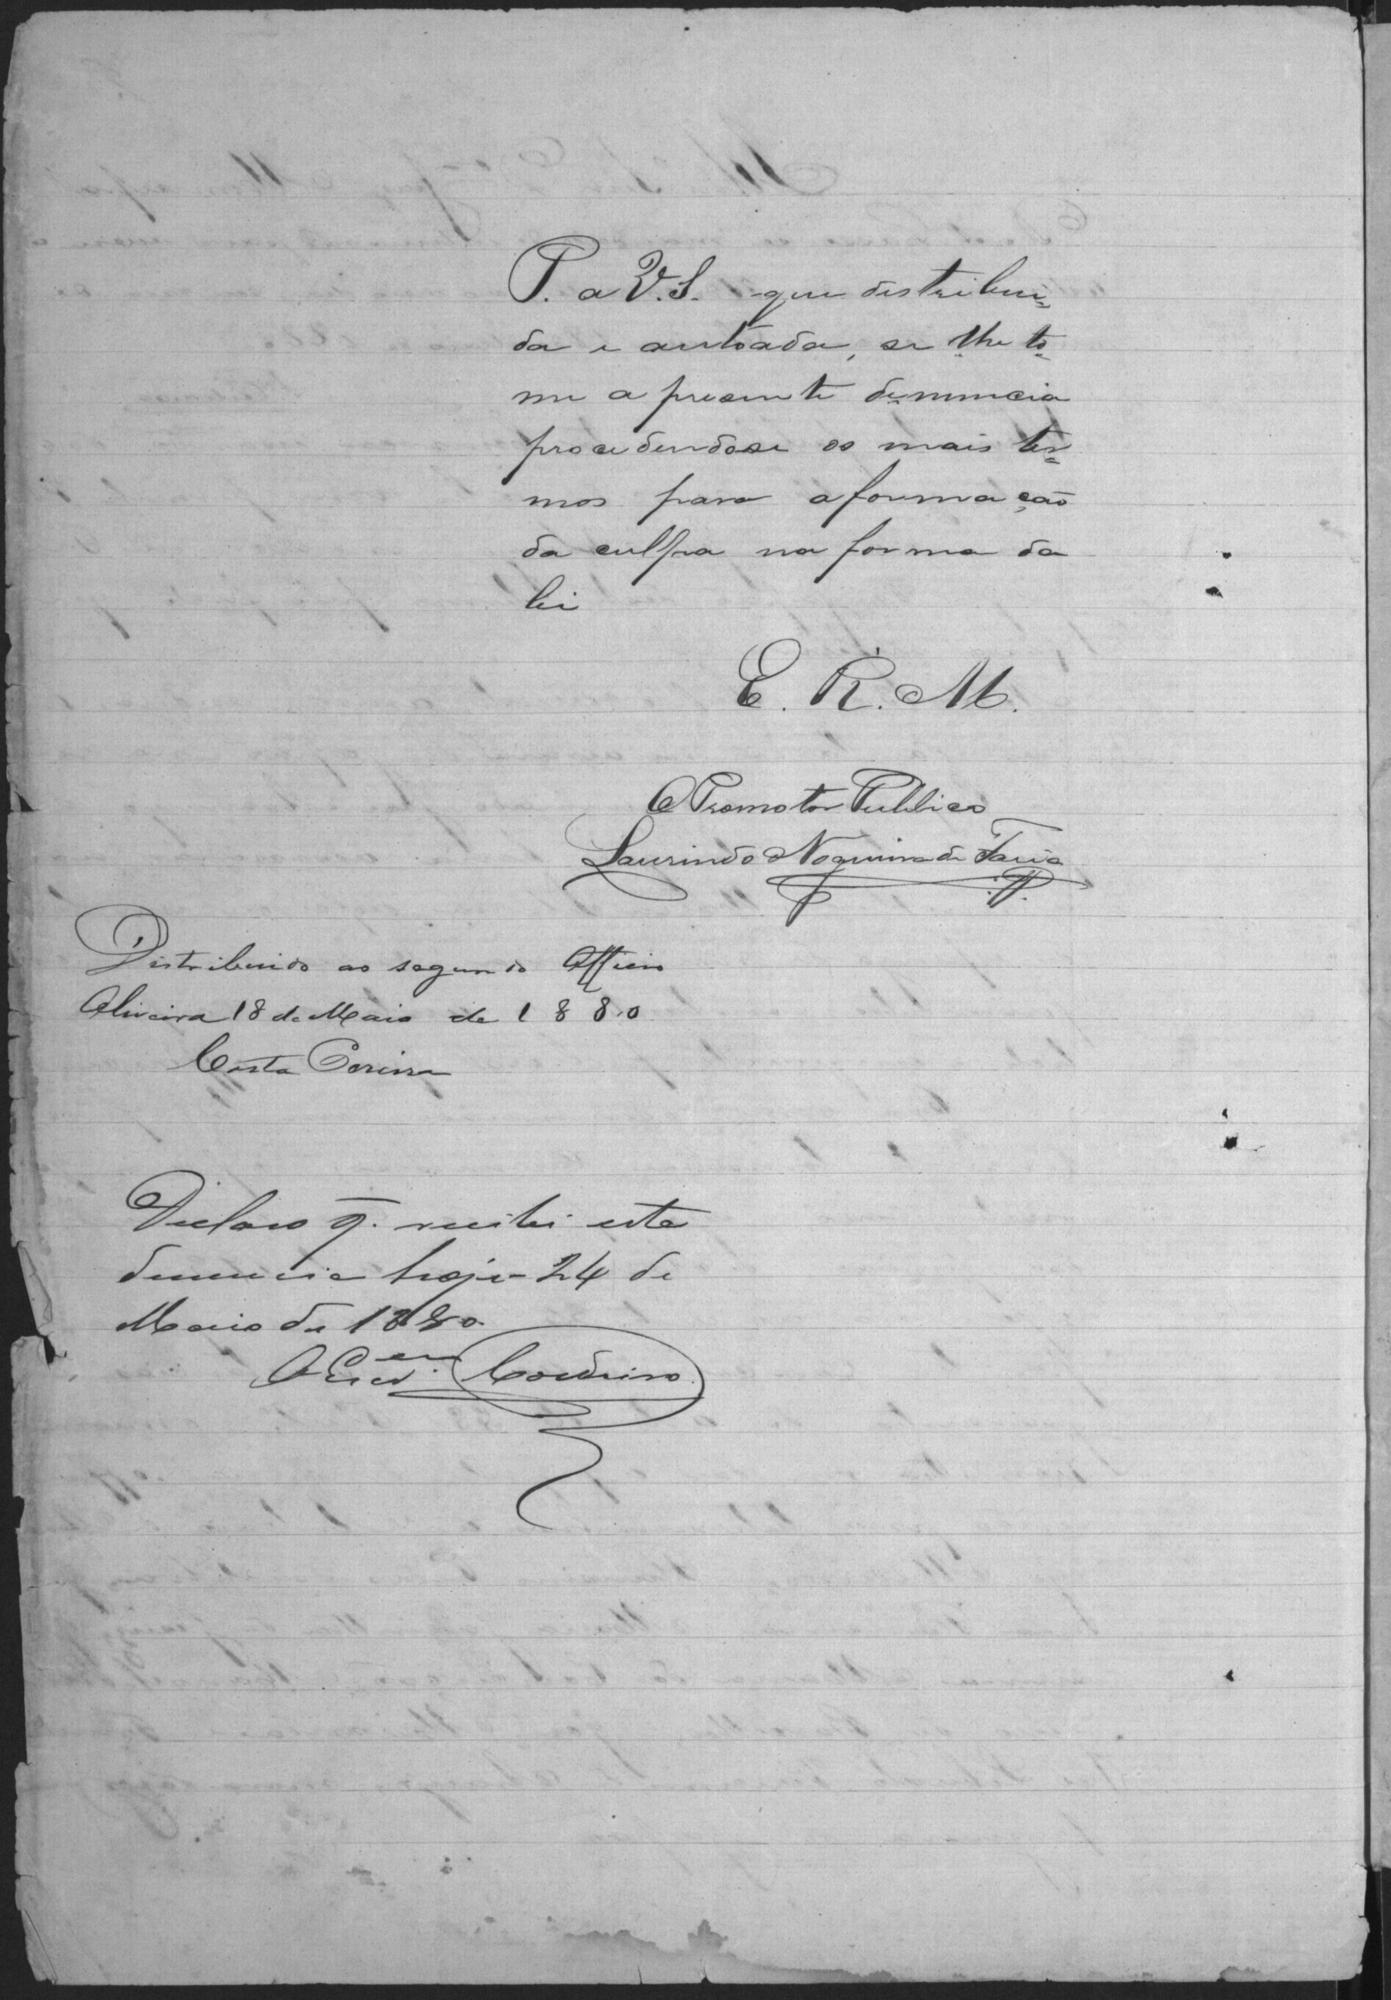 P. a V.S. que distribui=
da e autoada, se lhe to=
me a presente denuncia
procedendose os mais ter=
mos para a formação
da culpa na forma da
lei
E. R. M.
O Promotor Publico
Laurindo Nogueira de Faria
Distribuido ao segundo Officio
Oliveira 18 de Maio de 1880
Costa Pereira
Declaro q. recibi esta
denuncia hoje 24 de
Maio de 1880
O Escr.am Cordeiro